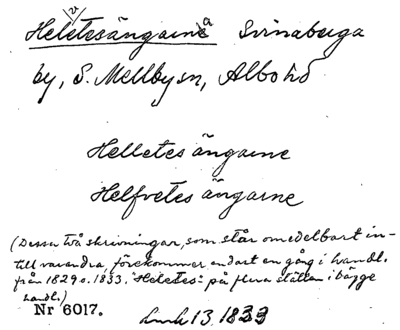 Heletesängarne Svinaberga
by, S. Mellby sn, Albo hd
Helletes ängarne
Helfvetes ängarne
(Dessa två skrivningar, som står omedelbart in-
till varandra, förekommer endast en gång i handl.
från 1829 o. 1833. "Heletes" på flera ställen i bägge
handl.)
Nr 6017.
13. 1833